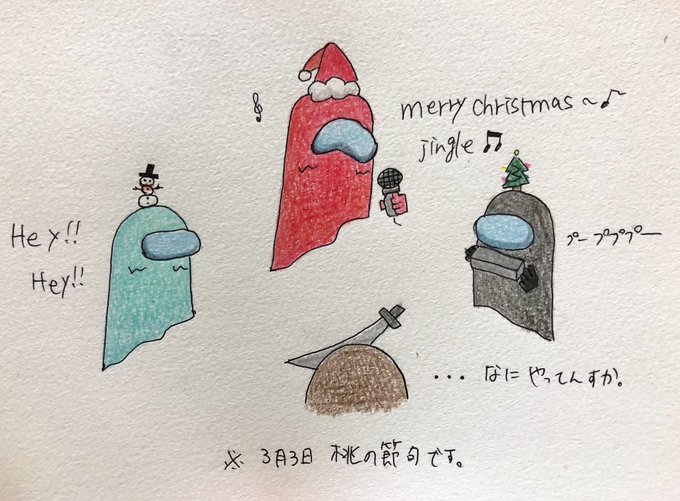 merry christmas ~♪
jingle ♫
Hey!!
Hey!!
プー プププー
... なに やってんすか。
※ 3月3日 桃の節句です。